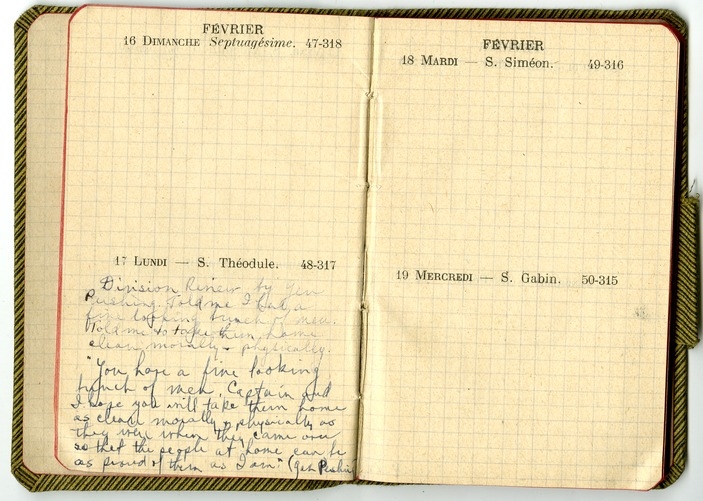 FÉVRIER
16 DIMANCHE Septuagésime. 47-318
17 LUNDI — S. Théodule. 48-317
Division Review by Gen
Pershing. Told me I had a
fine looking bunch of men.
Told me to take them home
clean morally & physically.
"You have a fine looking
bunch of men, Captain and
I hope you will take them home
as clean morally & physically as
they were when they came over
so that the people at home can be
as proud of them as I am." (Gen Pershing
FÉVRIER
18 MARDI — S. Siméon. 49-316
19 MERCREDI — S. Gabin. 50-315